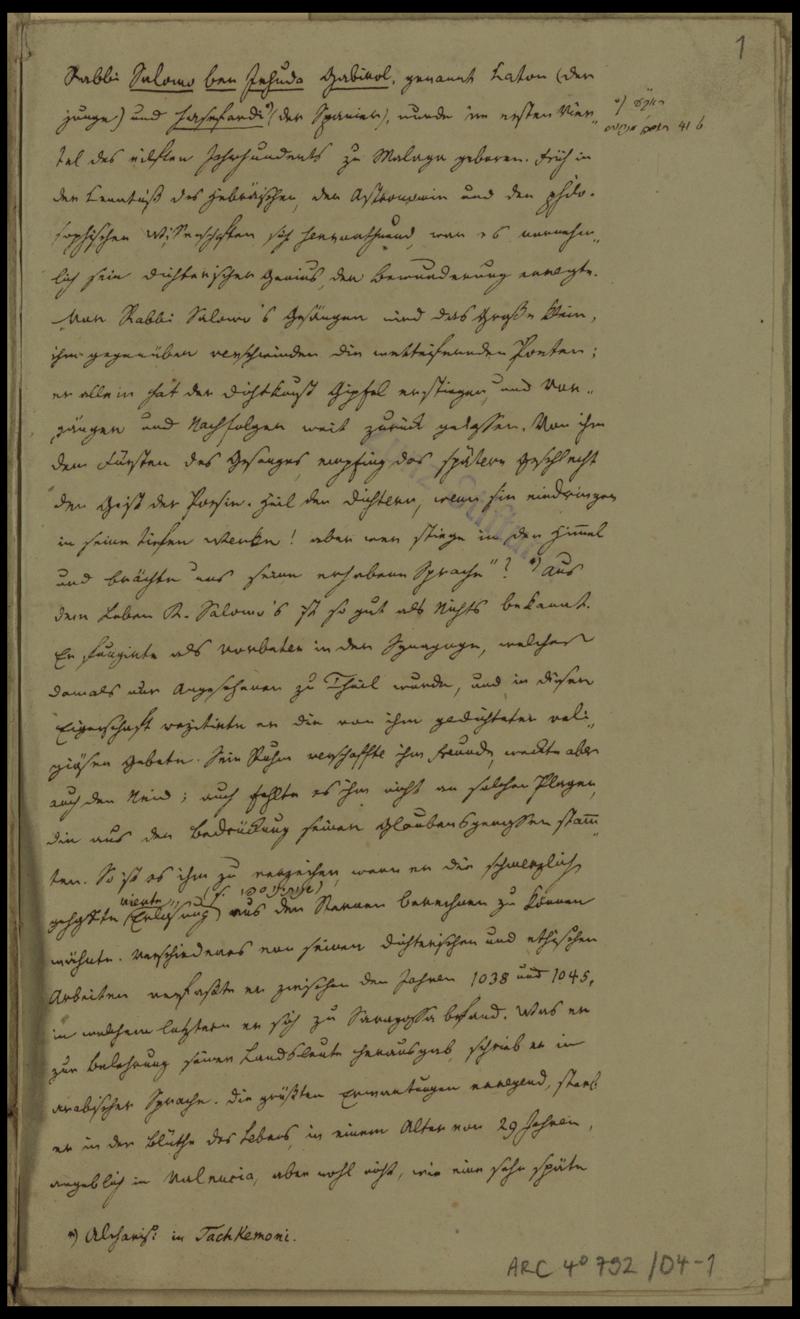 1
Rabbi Salomo ben Jehuda Gabirol, genannt Katon (der
junge) und hasefardi*) (der Spanier), wurde im ersten Vier-
41 b
tel des eilften Jahrhunderts zu Malaga geboren. Früh in
der Kenntniß des Hebräischen, der Astronomie und den philo-
sophischen Wissenschaften sich hervorthuend, war es vornehm-
lich sein dichterischer Genius, der Bewunderung erregte.
"Vor Rabbi Salomo's Gesängen wird das Große klein,
ihm gegenüber verschwinden die wetteifernden Poeten;
er allein hat der Dichtkunst Gipfel erstiegen, und Vor-
gänger und Nachfolger weit zurück gelassen. Von ihm
dem Fürsten des Gesanges empfing das spätere Geschlecht
den Geist der Poesie. Heil den Dichtern, wenn sie eindringen
in seine tiefen Werke! aber wer stiege in den Himmel
und brächte uns seine erhabene Sprache"? *) Aus
dem Leben R. Salomo's ist so gut als Nichts bekannt.
Er fungirte als Vorbeter in der Synagoge, welches
damals nur Angesehenen zu Theil wurde, und in dieser
Eigenschaft rezitirte er die von ihm gedichteten reli-
giösen Gebete. Sein Ruhm verschaffte ihm Freunde, weckte aber
auch den Neid; auch fehlte es ihm nicht an solchen Plagen,
die aus der Bedrückung seiner Glaubensgenossen stamm-
ten. So ist es ihm zu verzeihen, wenn er die schmerzlich
gehoffte Erlösung aus den Sternen berechnen zu können
wähnte. Verschiedenes von seinen dichterischen und ethischen
Arbeiten verfaßte er zwischen den Jahren 1038 und 1045,
in welchem letztern er sich zu Saragossa befand. Was er
zur Belehrung seiner Landsleute herausgab, schrieb er in
arabischer Sprache. Die größten Erwartungen erregend, starb
er in der Blüthe des Lebens, in einem Alter von 29 Jahren,
angeblich in Valencia, aber wohl nicht, wie eine sehr späte
*) Alcharisi in Tachkemoni.
ARC 4° 792 /D4-1